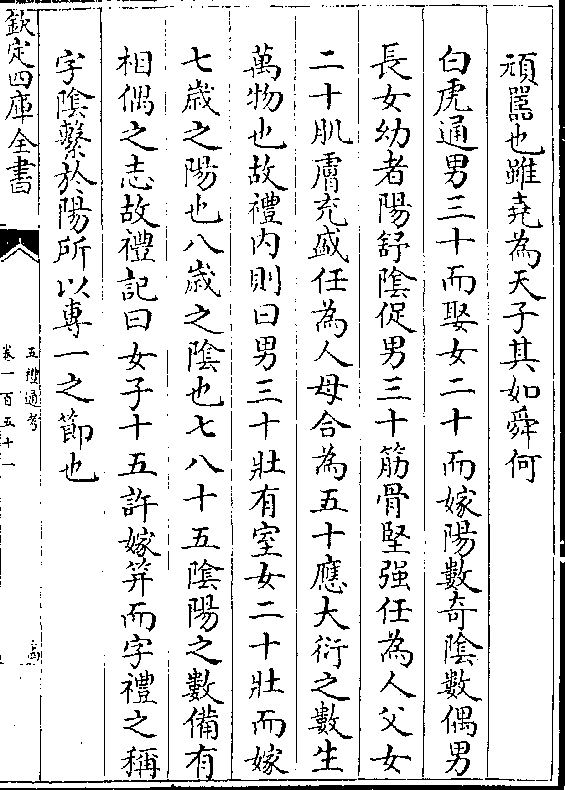 頑嚚也雖堯為天子其如舜何
白虎通男三十而娶女二十而嫁陽數奇陰數偶男
長女幼者陽舒陰促男三十筋骨堅强任為人父女
二十肌膚充盛任為人母合為五十應大衍之數生
萬物也故禮内則曰男三十壯有室女二十壯而嫁
七歲之陽也八歲之陰也七八十五陰陽之數備有
相偶之志故禮記曰女子十五許嫁笄而字禮之稱
字陰繫於陽所以專一之節也
欽定四庫全書
五禮通考
卷一百五十一